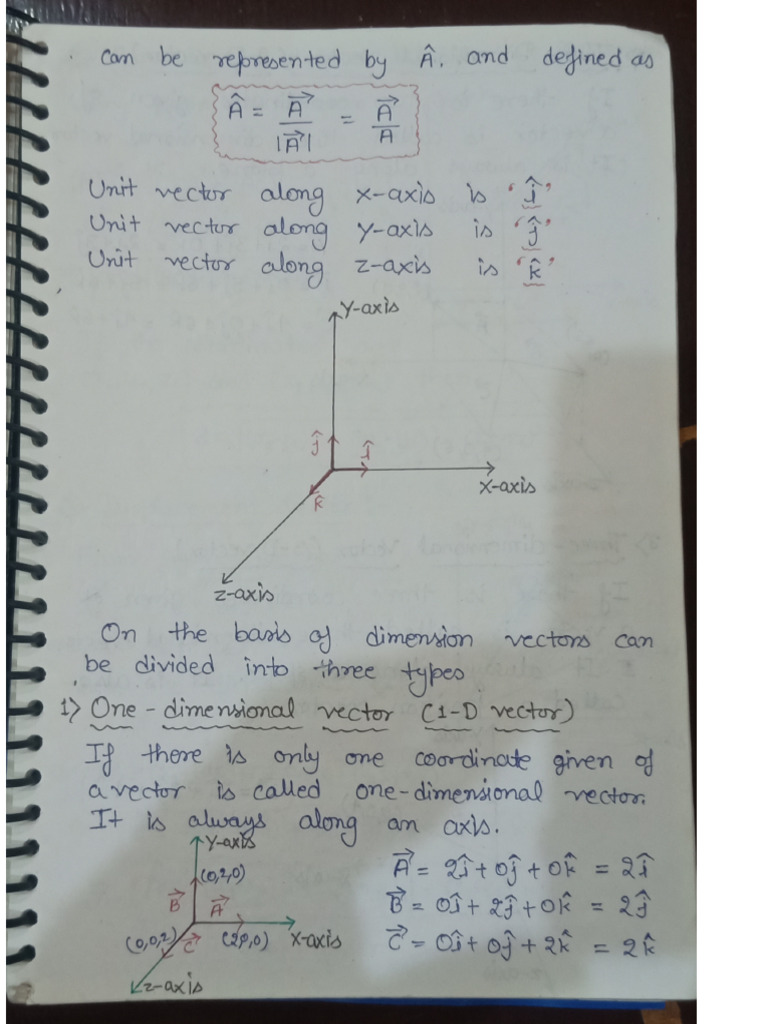 can be represented by Â. and defined as
Â = A⃗ / |A⃗| = A⃗ / A
Unit vector along x-axis is 'î'
Unit vector along y-axis is 'ĵ'
Unit vector along z-axis is 'k̂'
Y-axis
ĵ î
X-axis
k̂
z-axis
On the basis of dimension vectors can
be divided into three types
1> One-dimensional vector (1-D vector)
If there is only one coordinate given of
a vector is called one-dimensional vector.
It is always along an axis.
Y-axis
(0,2,0)
B⃗ A⃗
(0,0,2) C⃗ (2,0,0) X-axis
z-axis
A⃗ = 2î + 0ĵ + 0k̂ = 2î
B⃗ = 0î + 2ĵ + 0k̂ = 2ĵ
C⃗ = 0î + 0ĵ + 2k̂ = 2k̂